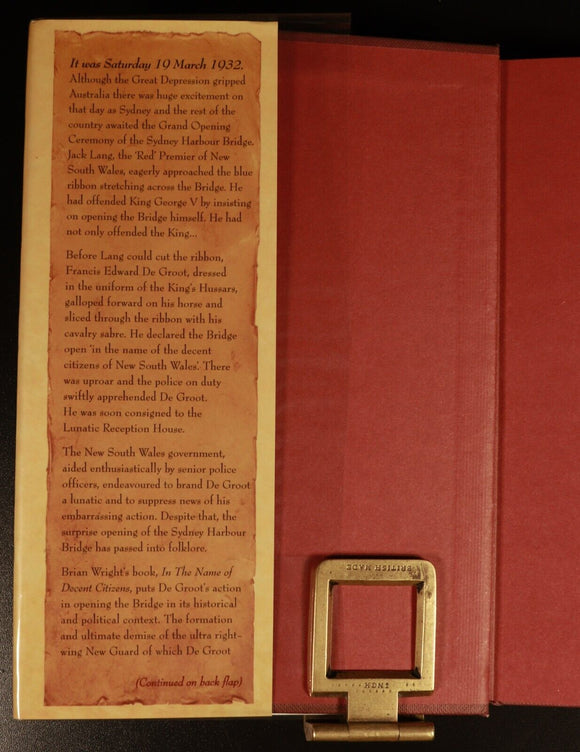 It was Saturday 19 March 1932.
Although the Great Depression gripped
Australia there was huge excitement on
that day as Sydney and the rest of the
country awaited the Grand Opening
Ceremony of the Sydney Harbour Bridge.
Jack Lang, the 'Red' Premier of New
South Wales, eagerly approached the blue
ribbon stretching across the Bridge. He
had offended King George V by insisting
on opening the Bridge himself. He had
not only offended the King...
Before Lang could cut the ribbon,
Francis Edward De Groot, dressed
in the uniform of the King's Hussars,
galloped forward on his horse and
sliced through the ribbon with his
cavalry sabre. He declared the Bridge
open 'in the name of the decent
citizens of New South Wales'. There
was uproar and the police on duty
swiftly apprehended De Groot.
He was soon consigned to the
Lunatic Reception House.
The New South Wales government,
aided enthusiastically by senior police
officers, endeavoured to brand De Groot
a lunatic and to suppress news of his
embarrassing action. Despite that, the
surprise opening of the Sydney Harbour
Bridge has passed into folklore.
Brian Wright's book, In The Name of
Decent Citizens, puts De Groot's action
in opening the Bridge in its historical
and political context. The formation
and ultimate demise of the ultra right-
wing New Guard of which De Groot
(Continued on back flap)
BRITISH MADE